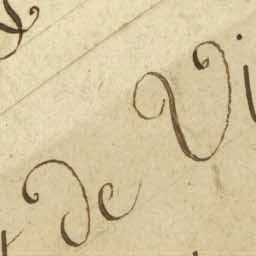 de Vi